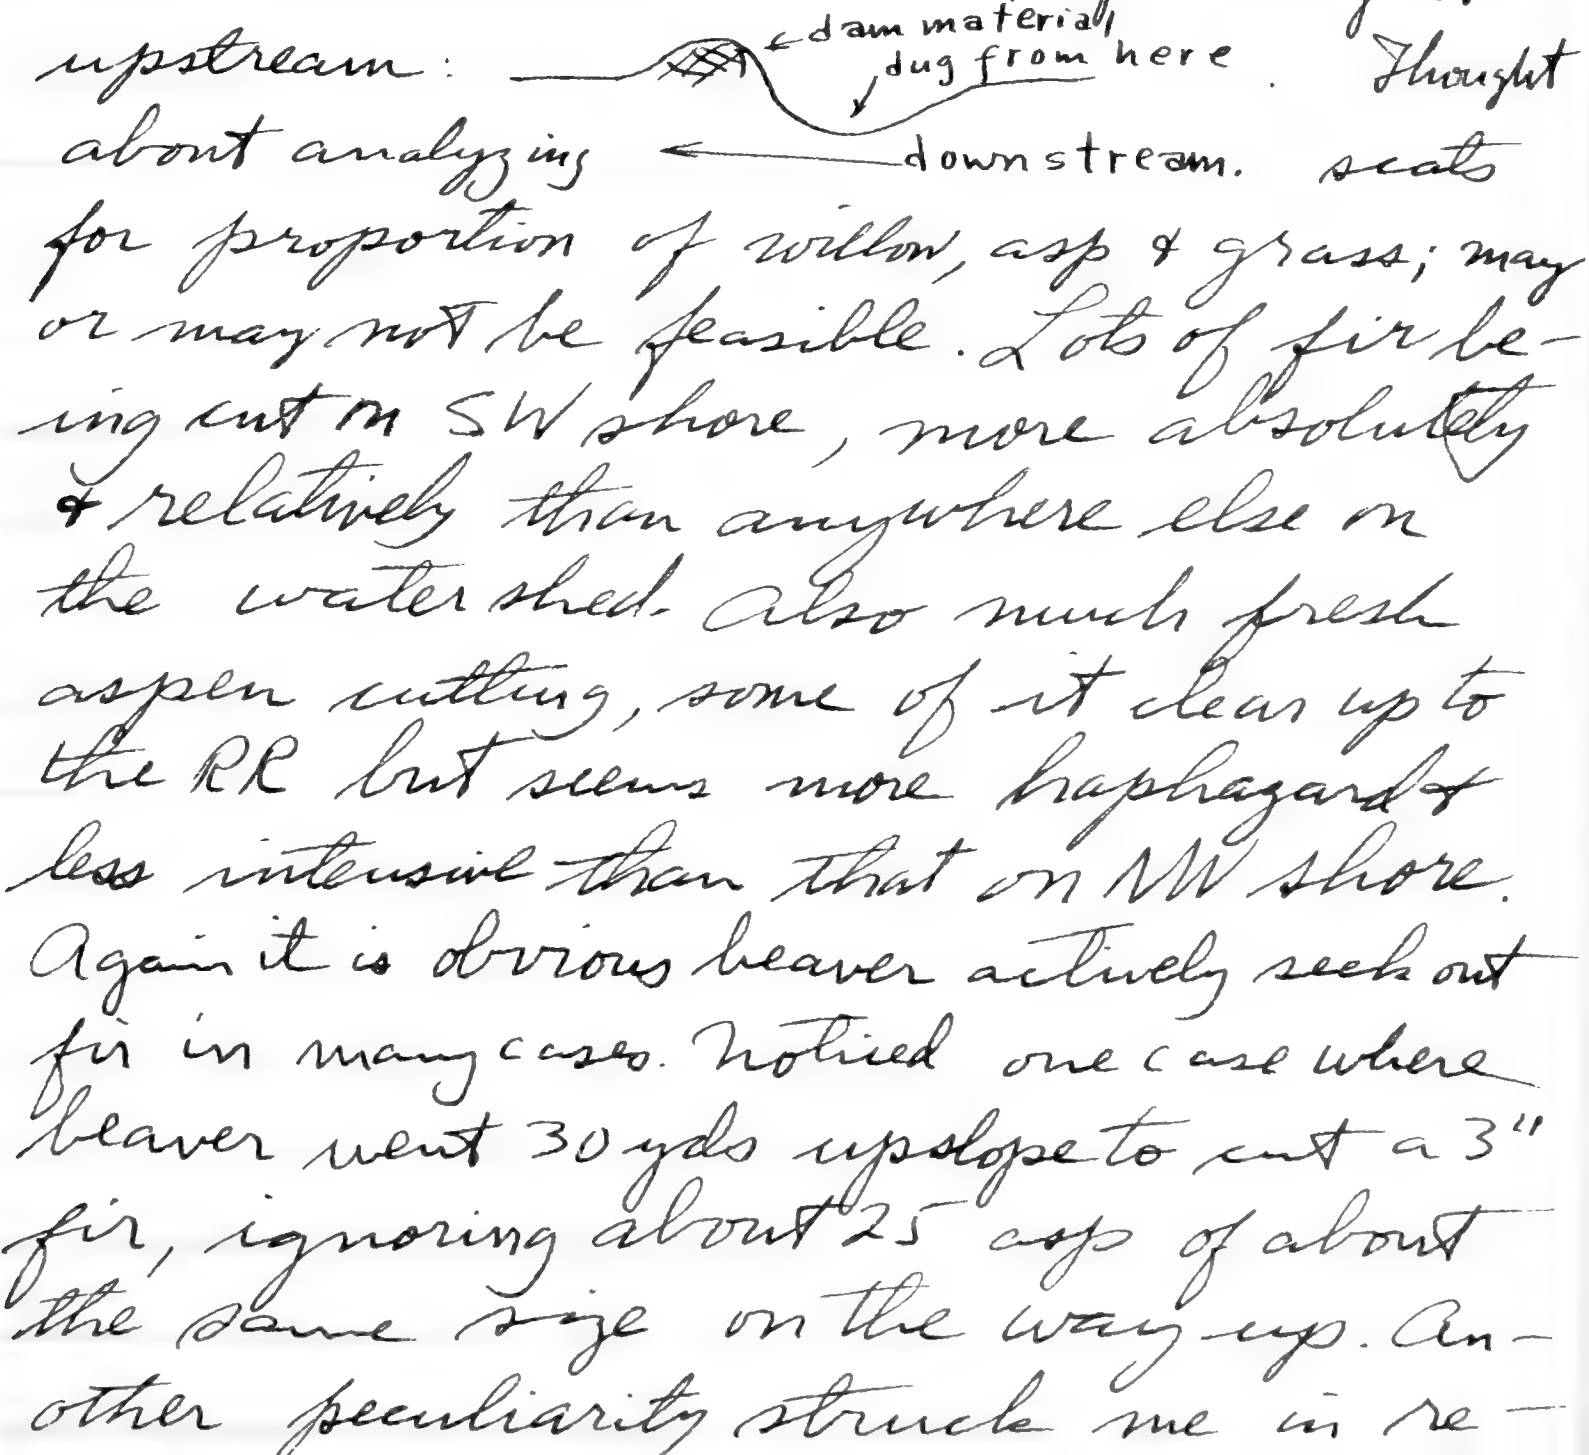 upstream: dam material, dug from here. Thought
about analyzing downstream. scats
for proportion of willow, asp & grass; may
or may not be feasible. Lots of fir be-
ing cut on SW shore, more absolutely
& relatively than anywhere else on
the watershed. Also much fresh
aspen cutting, some of it clear up to
the RR but seems more haphazard &
less intensive than that on NW shore.
Again it is obvious beaver actively seek out
fir in many cases. Noticed one case where
beaver went 30 yds upslope to cut a 3"
fir, ignoring about 25 asp of about
the same size on the way up. An-
other peculiarity struck me in re-